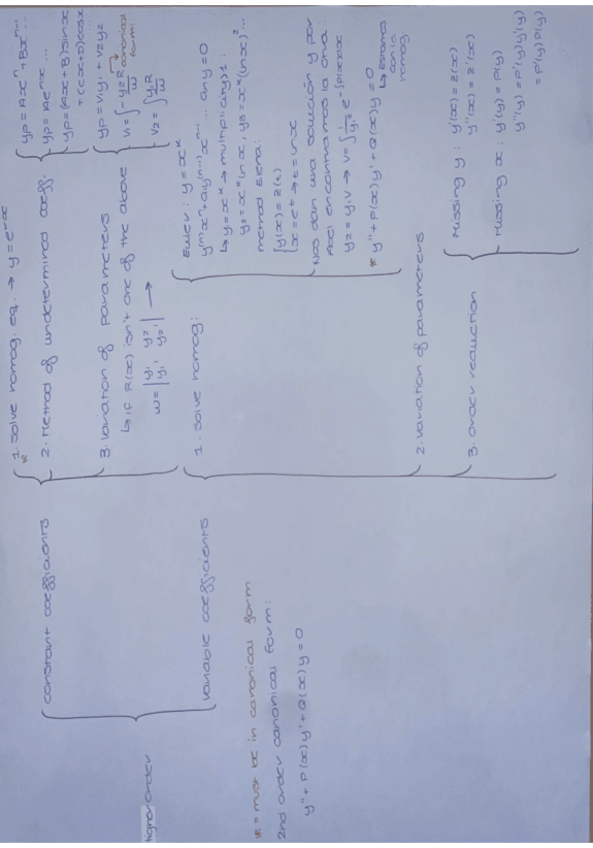 Higher Order
constant coefficients
* 1. Solve homog. eq. → y = e^rx
2. Method of undetermined coeff.
yp = Ax^n + Bx^n-1 ...
yp = Ae^nx ...
yp = (Ax+B)sinx
+ (Cx+D)cosx
3. Variation of parameters
↳ if R(x) isn't one of the above
w = | y1 y2 |
| y1' y2' | →
yp = v1y1 + v2y2
v1 = ∫ -y2R/w → canonical
form!
v2 = ∫ y1R/w
variable coefficients
1. Solve homog:
Euler: y = x^k
y^(n) x^n + a1y^(n-1) x^n-1 ... any = 0
↳ y = x^k → multiplicity > 1:
y2 = x^k lnx, y3 = x^k (lnx)^2 ...
method Elena:
{ y(x) = z(t)
x = e^t → t = lnx
Nos dan una solución y por
Abel encontramos la otra:
y2 = y1v → v = ∫ 1/y1² e^-∫P(x)dx dx
* y'' + P(x)y' + Q(x)y = 0
↳ Estamos
con la
homog
2. Variation of parameters
3. Order reduction
Missing y: y'(x) = z(x)
y''(x) = z'(x)
Missing x: y'(y) = P(y)
y''(y) = P'(y)y'(y)
= P'(y)P(y)
* = must be in canonical form
2nd order canonical form:
y'' + P(x)y' + Q(x)y = 0